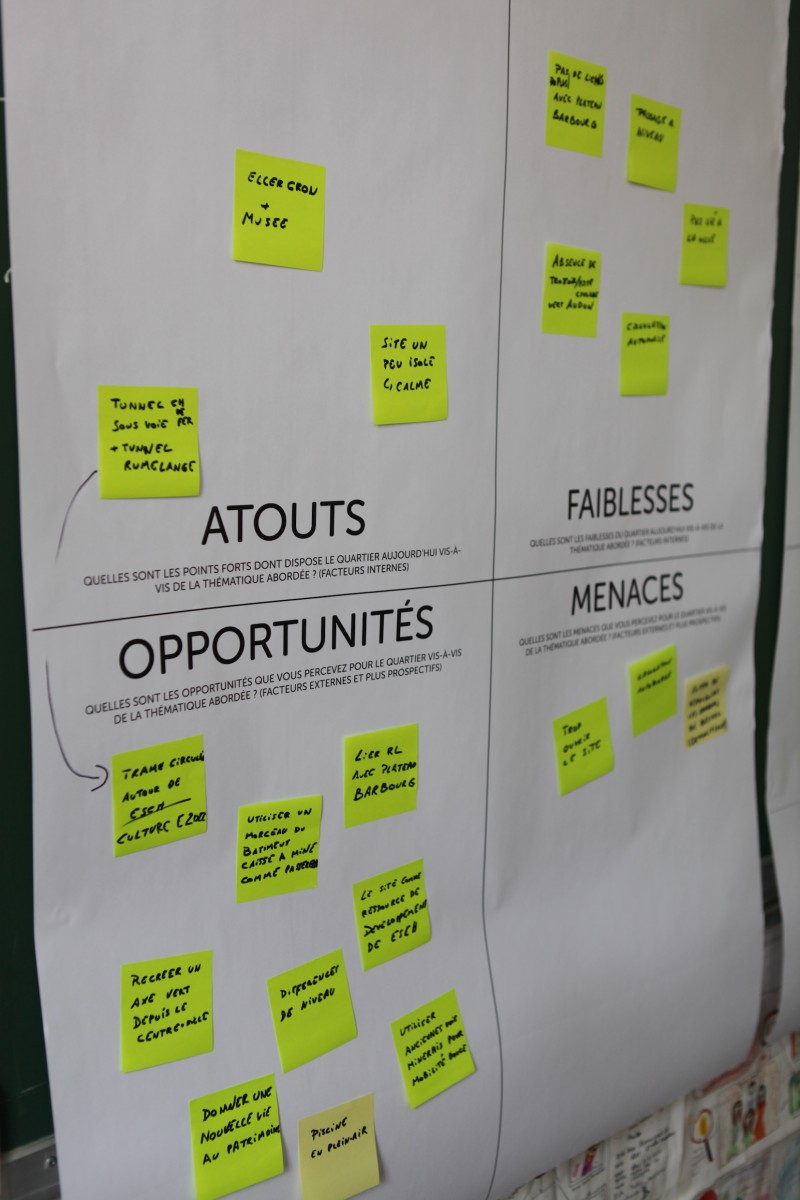 ELLERGRON
+
MUSEE
SITE UN
PEU ISOLÉ
CALME
TUNNEL CH
DE
SOUS VOIE FER
+ TUNNEL
RUMELANGE
ATOUTS
QUELLES SONT LES POINTS FORTS DONT DISPOSE LE QUARTIER AUJOURD'HUI VIS-À-
VIS DE LA THÉMATIQUE ABORDÉE ? (FACTEURS INTERNES)
PAS DE LIENS
AVEC PLATEAU
BARBOURG
PASSAGE A
NIVEAU
ABSENCE DE
VERT AUDUN
CIRCULATION
AUTOMOBILE
FAIBLESSES
QUELLES SONT LES FAIBLESSES DU QUARTIER AUJOURD'HUI VIS-À-VIS DE LA
THÉMATIQUE ABORDÉE ? (FACTEURS INTERNES)
OPPORTUNITÉS
QUELLES SONT LES OPPORTUNITÉS QUE VOUS PERCEVEZ POUR LE QUARTIER VIS-À-VIS
DE LA THÉMATIQUE ABORDÉE ? (FACTEURS EXTERNES ET PLUS PROSPECTIFS)
TRAME CIRCULÉ
AUTOUR DE
ESCH
CULTURE E2022
LIER RL
AVEC PLATEAU
BARBOURG
UTILISER UN
MORCEAU DU
BATIMENT
CAISSE A MINE
COMME
LE SITE COMME
RESSOURCE DE
DEVELOPPEMENT
DE ESCH
RECREER UN
AXE VERT
DEPUIS LE
CENTRE-VILLE
DIFFERENCES
DE NIVEAU
UTILISER
ANCIENNES
MINERAIS POUR
MOBILITÉ DOUCE
DONNER UNE
NOUVELLE VIE
AU PATRIMOINE
PISCINE
EN PLEIN-AIR
MENACES
QUELLES SONT LES MENACES QUE VOUS PERCEVEZ POUR LE QUARTIER VIS-À-VIS
DE LA THÉMATIQUE ABORDÉE ? (FACTEURS EXTERNES ET PLUS PROSPECTIFS)
TROP
OUVRIR
LE SITE